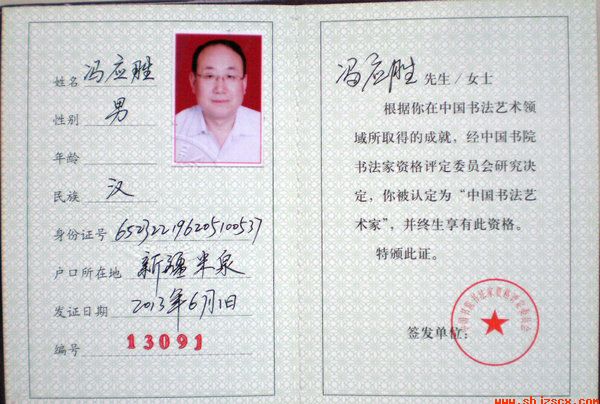 姓名 冯应胜
性别 男
年龄
民族 汉
身份证号 652322196205100537
户口所在地 新疆米泉
发证日期 2013年6月1日
编号 13091
冯应胜 先生/女士
根据你在中国书法艺术领
域所取得的成就，经中国书院
书法家资格评定委员会研究决
定，你被认定为“中国书法艺
术家”，并终生享有此资格。
特颁此证。
签发单位：
中国书院书法家资格评定委员会
www.shjzscx.com